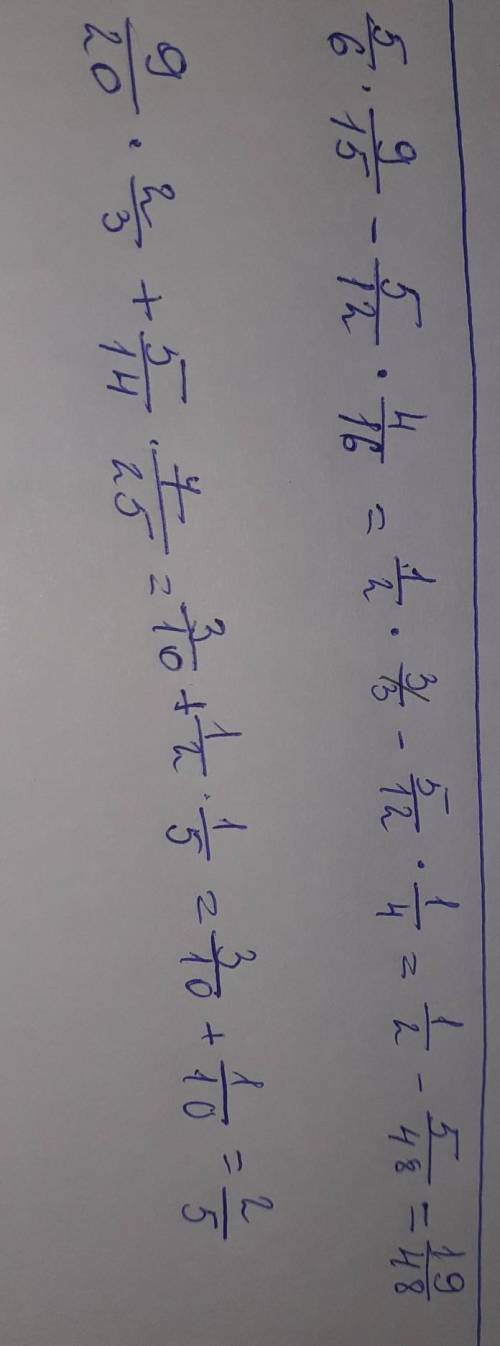 5/6 · 9/15 - 5/12 · 4/16 = 1/2 · 3/3 - 5/12 · 1/4 = 1/2 - 5/48 = 19/48
9/20 · 2/3 + 5/14 · 7/25 = 3/10 + 1/2 · 1/5 = 3/10 + 1/10 = 2/5